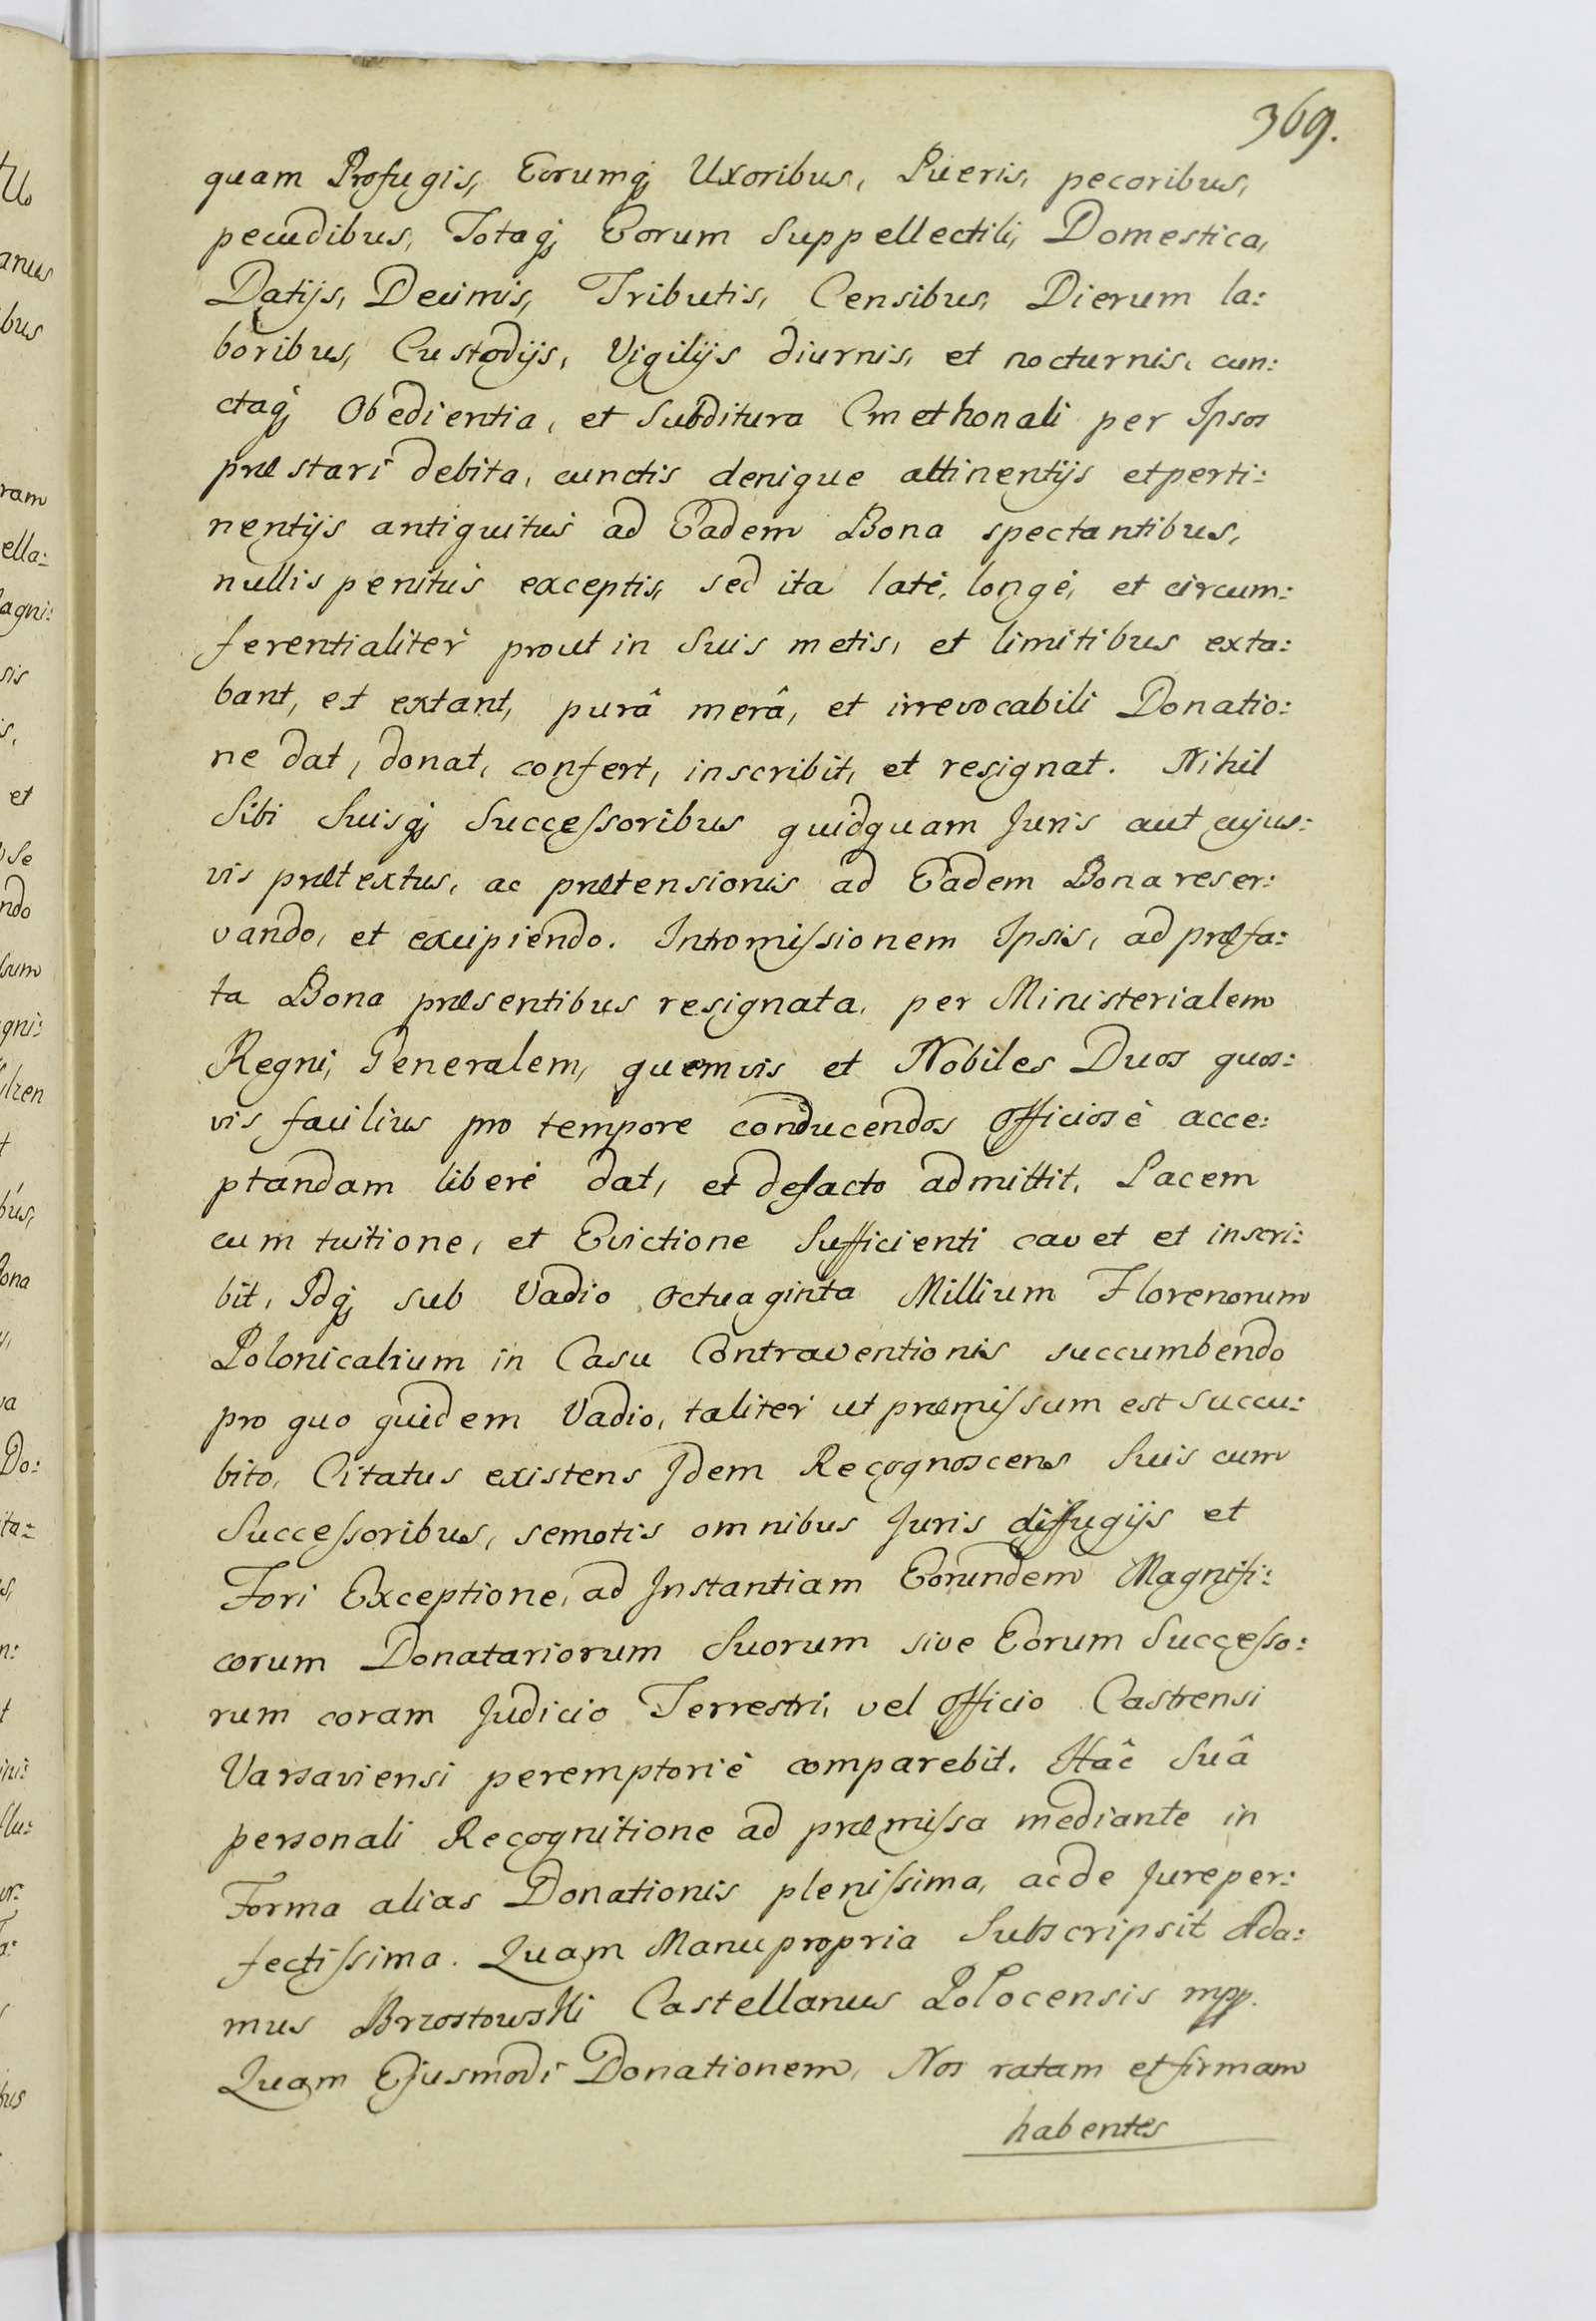 369.
quam Profugis, Eorumq; Uxoribus, Pueris, pecoribus,
pecudibus, Totaq; Eorum Suppellectili, Domestica,
Datijs, Decimis, Tributis, Censibus, Dierum la:
boribus, Custodijs, Vigilijs diurnis, et nocturnis, cun:
ctaq; Obedientia, et Subditura Cmethonali per Ipsos
præstari debita, cunctis denique attinentijs et perti:
nentijs antiquitùs ad Eadem Bona spectantibus,
nullis penitùs exceptis, sed ita latè, longè, et circum:
ferentialitèr prout in Suis metis, et limitibus exta:
bant, et extant, purâ merâ, et irrevocabili Donatio:
ne dat, donat, confert, inscribit, et resignat. Nihil
Sibi Suisq; Successoribus quidquam Juris aut cujus:
vis prætextus, ac prætensionis ad Eadem Bona reser:
vando, et excipiendo. Intromissionem Ipsis, ad præfa:
ta Bona præsentibus resignata, per Ministerialem
Regni, Generalem, quemvis et Nobiles Duos quos:
vis facilius pro tempore conducendos Officiosè acce:
ptandam liberè dat, et defacto admittit, Pacem
cum tuitione, et Evictione Sufficienti cavet et inscri:
bit, Idq; sub Vadio Octuaginta Millium Florenorum
Polonicalium in Casu Contraventionis succumbendo
pro quo quidem Vadio, taliter ut præmissum est succu:
bito, Citatus existens Idem Recognoscens Suis cum
Successoribus, semotis omnibus Juris diffugijs et
Fori Exceptione, ad Instantiam Eorundem Magnifi:
corum Donatariorum Suorum sive Eorum Successo:
rum coram Judicio Terrestri, vel Officio Castrensi
Varsaviensi peremptoriè comparebit. Hâc Suâ
personali Recognitione ad præmissa mediante in
Forma alias Donationis plenissima, ac de Jure per:
fectissima. Quam Manu propria Subscripsit Ada:
mus Brzostowski Castellanus Polocensis mpp.
Quam Ejusmodi Donationem, Nos ratam et firmam
habentes